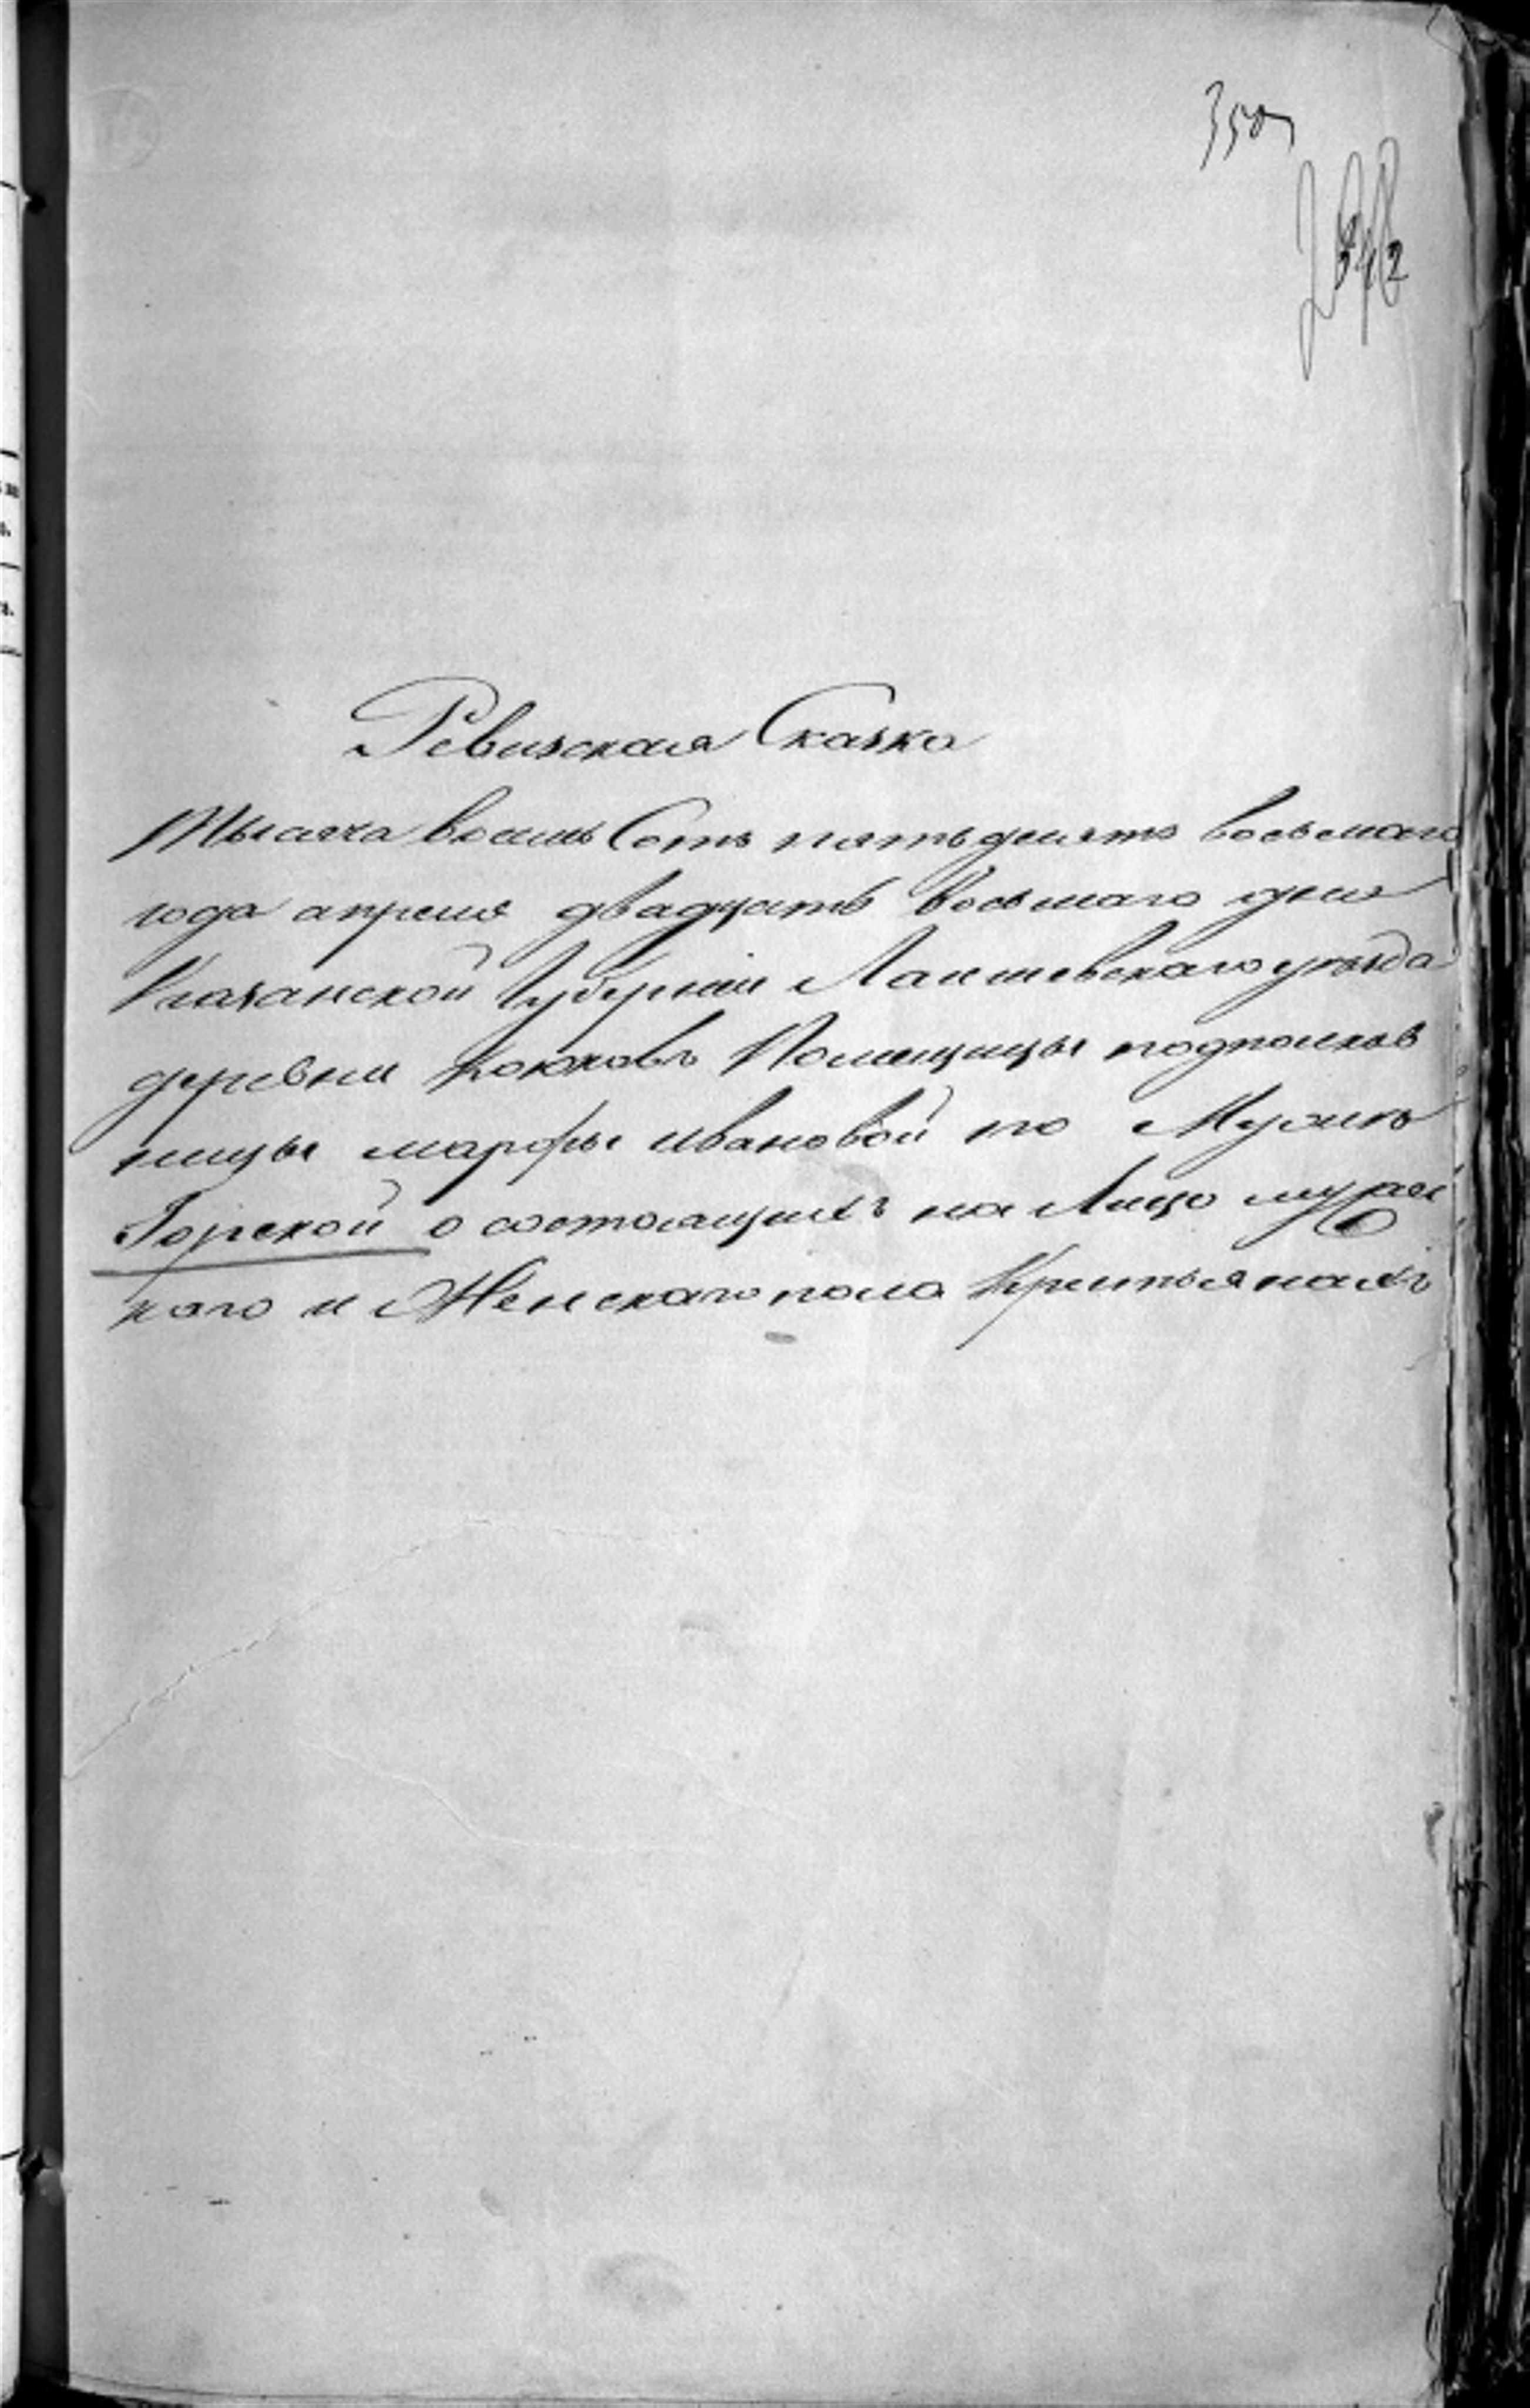 350
Ревизская Сказка
Тысяча восемь Сотъ пятьдесятъ восьмаго
года апреля двадцать восьмаго дня
Казанской Губерніи Лаишевскаго уезда
деревни Помещицы подполков
ницы марфы ивановой по Мужъ
Горской о состоящихъ на Лицо мужес
каго и Женскаго пола Крестьянахъ